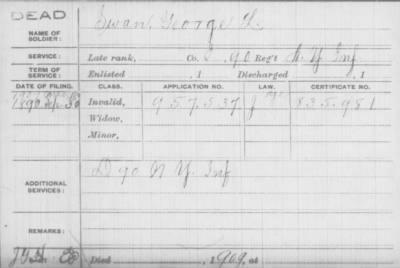 DEAD
NAME OF SOLDIER: Swan, George H.
SERVICE: Late rank, Co. 90 Reg't N Y Inf
TERM OF SERVICE: Enlisted , 1 Discharged , 1
DATE OF FILING. CLASS. APPLICATION NO. LAW. CERTIFICATE NO.
1890 Invalid, 957,537 835,981
Widow,
Minor,
ADDITIONAL SERVICES: D 90 N Y Inf
REMARKS:
Died , 1909, at